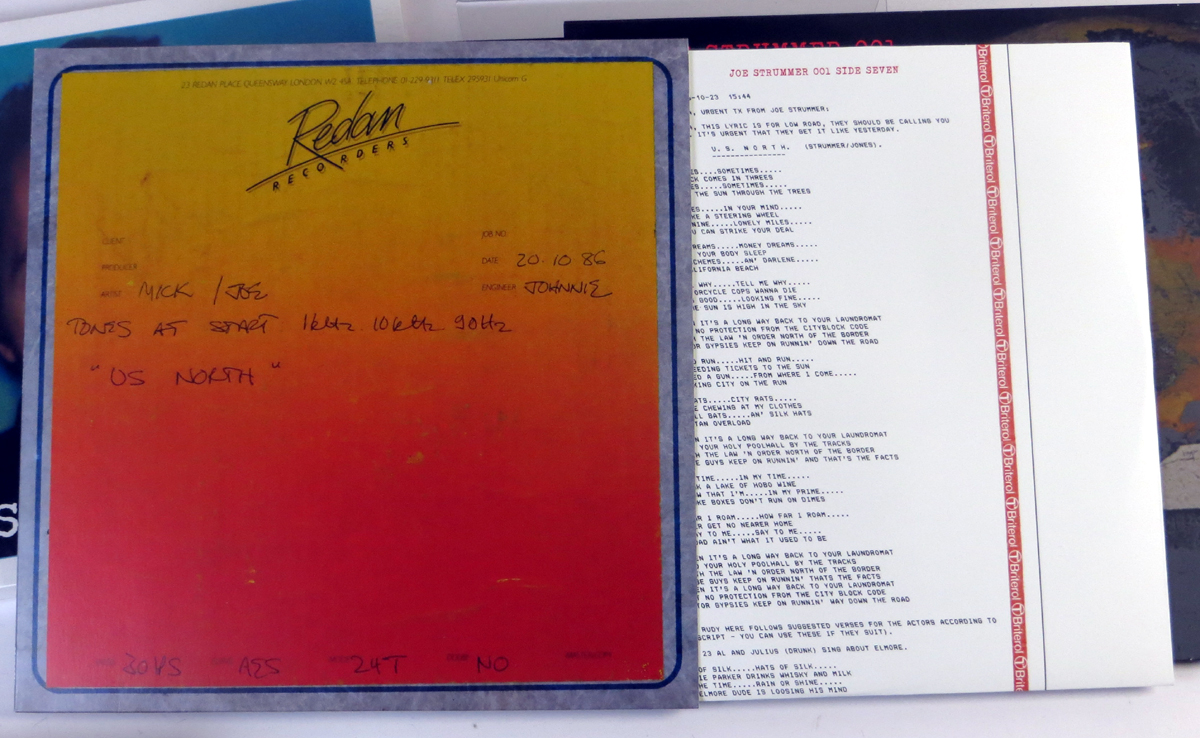 23 REDAN PLACE QUEENSWAY LONDON W2 4SA TELEPHONE 01-229-9311 TELEX 295931 Unicom G
Redan
RECORDERS
CLIENT
JOB NO.
PRODUCER
DATE 20·10 86
ARTIST MICK / JOE
ENGINEER JOHNNIE
TONES AT START 1kHz 10kHz 90Hz
"US NORTH"
30 IPS AES 24T NO
STRUMMER 001
JOE STRUMMER 001 SIDE SEVEN
-10-23 15:44
, URGENT TX FROM JOE STRUMMER:
, THIS LYRIC IS FOR LOW ROAD, THEY SHOULD BE CALLING YOU
IT'S URGENT THAT THEY GET IT LIKE YESTERDAY.
U.S. N O R T H. (STRUMMER/JONES).
S....SOMETIMES.....
CK COMES IN THREES
S.....SOMETIMES.....
THE SUN THROUGH THE TREES
ES.....IN YOUR MIND.....
KE A STEERING WHEEL
NINE.....LONELY MILES.....
U CAN STRIKE YOUR DEAL
REAMS.....MONEY DREAMS.....
YOUR BODY SLEEP
CHEMES.....AN' DARLENE.....
LIFORNIA BEACH
WHY.....TELL ME WHY.....
ORCYCLE COPS WANNA DIE
GOOD.....LOOKING FINE.....
E SUN IS HIGH IN THE SKY
IT'S A LONG WAY BACK TO YOUR LAUNDROMAT
NO PROTECTION FROM THE CITYBLOCK CODE
THE LAW 'N ORDER NORTH OF THE BORDER
R GYPSIES KEEP ON RUNNIN' DOWN THE ROAD
RUN.....HIT AND RUN.....
EEDING TICKETS TO THE SUN
D A SUN.....FROM WHERE I COME.....
KING CITY ON THE RUN
ATS.....CITY RATS.....
E CHEWING AT MY CLOTHES
LL BATS.....AN' SILK HATS
TAN OVERLOAD
N IT'S A LONG WAY BACK TO YOUR LAUNDROMAT
YOUR HOLY POOLHALL BY THE TRACKS
H THE LAW 'N ORDER NORTH OF THE BORDER
E GUYS KEEP ON RUNNIN' AND THAT'S THE FACTS
TIME.....IN MY TIME.....
K A LAKE OF HOBO WINE
W THAT I'M.....IN MY PRIME.....
KE BOXES DON'T RUN ON DIMES
R I ROAM.....HOW FAR I ROAM.....
R GET NO NEARER HOME
Y TO ME.....SAY TO ME.....
AD AIN'T WHAT IT USED TO BE
N IT'S A LONG WAY BACK TO YOUR LAUNDROMAT
YOUR HOLY POOLHALL BY THE TRACKS
H THE LAW 'N ORDER NORTH OF THE BORDER
E GUYS KEEP ON RUNNIN' THATS THE FACTS
EN IT'S A LONG WAY BACK TO YOUR LAUNDROMAT
NO PROTECTION FROM THE CITY BLOCK CODE
TOR GYPSIES KEEP ON RUNNIN' WAY DOWN THE ROAD
RUDY HERE FOLLOWS SUGGESTED VERSES FOR THE ACTORS ACCORDING TO
SCRIPT - YOU CAN USE THESE IF THEY SUIT).
23 AL AND JULIUS (DRUNK) SING ABOUT ELMORE.
OF SILK.....HATS OF SILK.....
IE PARKER DRINKS WHISKY AND MILK
HE TIME.....RAIN OR SHINE.....
ELMORE DUDE IS LOOSING HIS MIND
Briterol Briterol Briterol Briterol Briterol Briterol Briterol Briterol Briterol Briterol Briterol Brite
S